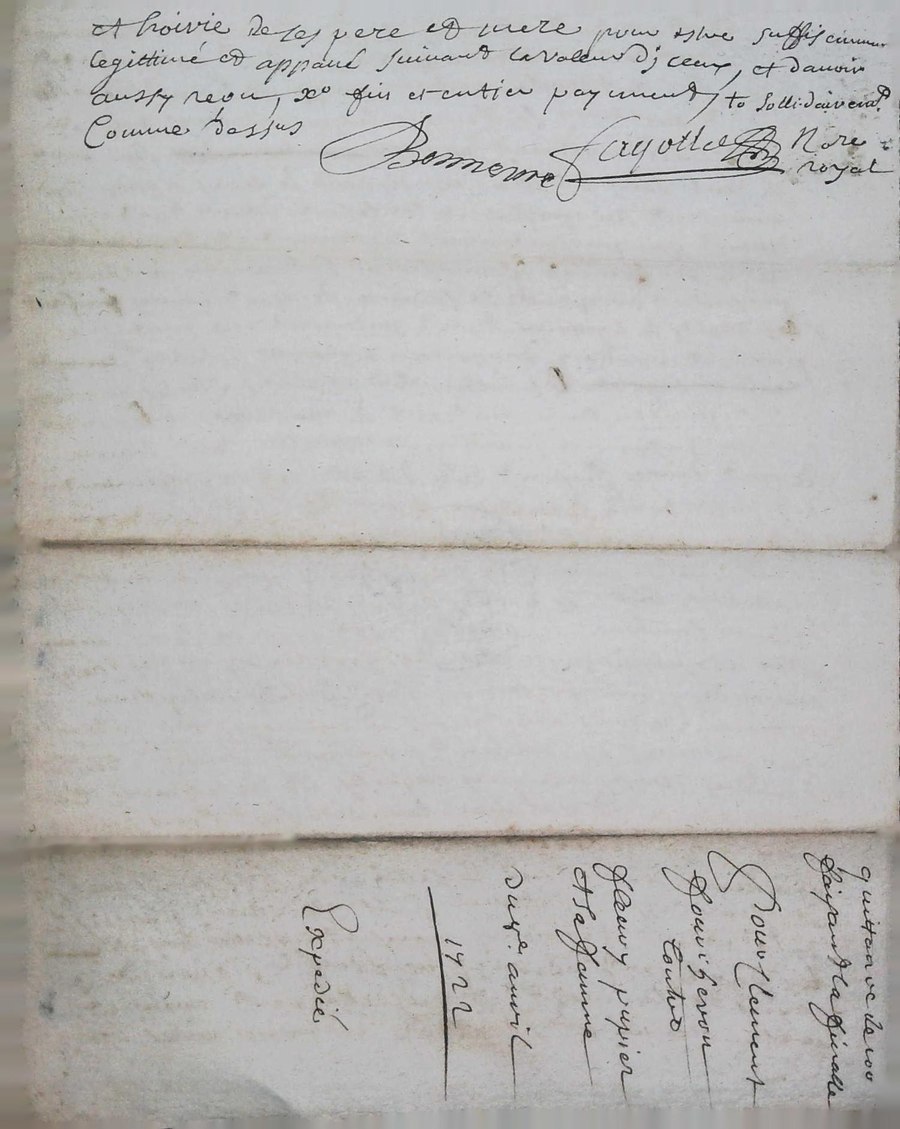 et hoivie de ses pere et mere pour estre suffisemmen
legittimé et appané suivant la valeur d'jceux, et d'avoir
aussy receu, fin et entier payement, sollidairemt
Comme dessus
Bonnerre Fayolle Nore
royal
quittance de 100
faisant la finalle
Pour Clement
contre
fleury pupier
et sa femme
du avril
1722
Expedié